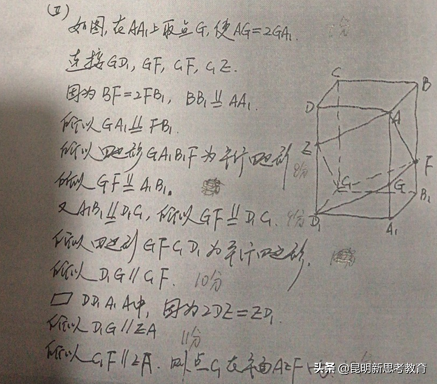 (Ⅱ)
如图,在AA₁上取点G,使AG=2GA₁
连接GD₁, GF, C₁F, C₁Z.
因为BF=2FB₁, BB₁⫫AA₁
所以GA₁⫫FB₁
所以四边形GA₁B₁F为平行四边形
所以GF⫫A₁B₁。
又A₁B₁⫫D₁C₁,所以GF⫫D₁C₁
所以四边形GFC₁D₁为平行四边形.
所以D₁G//C₁F. 10分
▭DD₁A₁A中,因为2DZ=ZD₁
所以D₁G//ZA 11分
所以C₁F//ZA. 即点C₁在平面AZF
C
B
D
A
Z
F
C₁
G
B₁
D₁
A₁
头条@昆明新思考教育